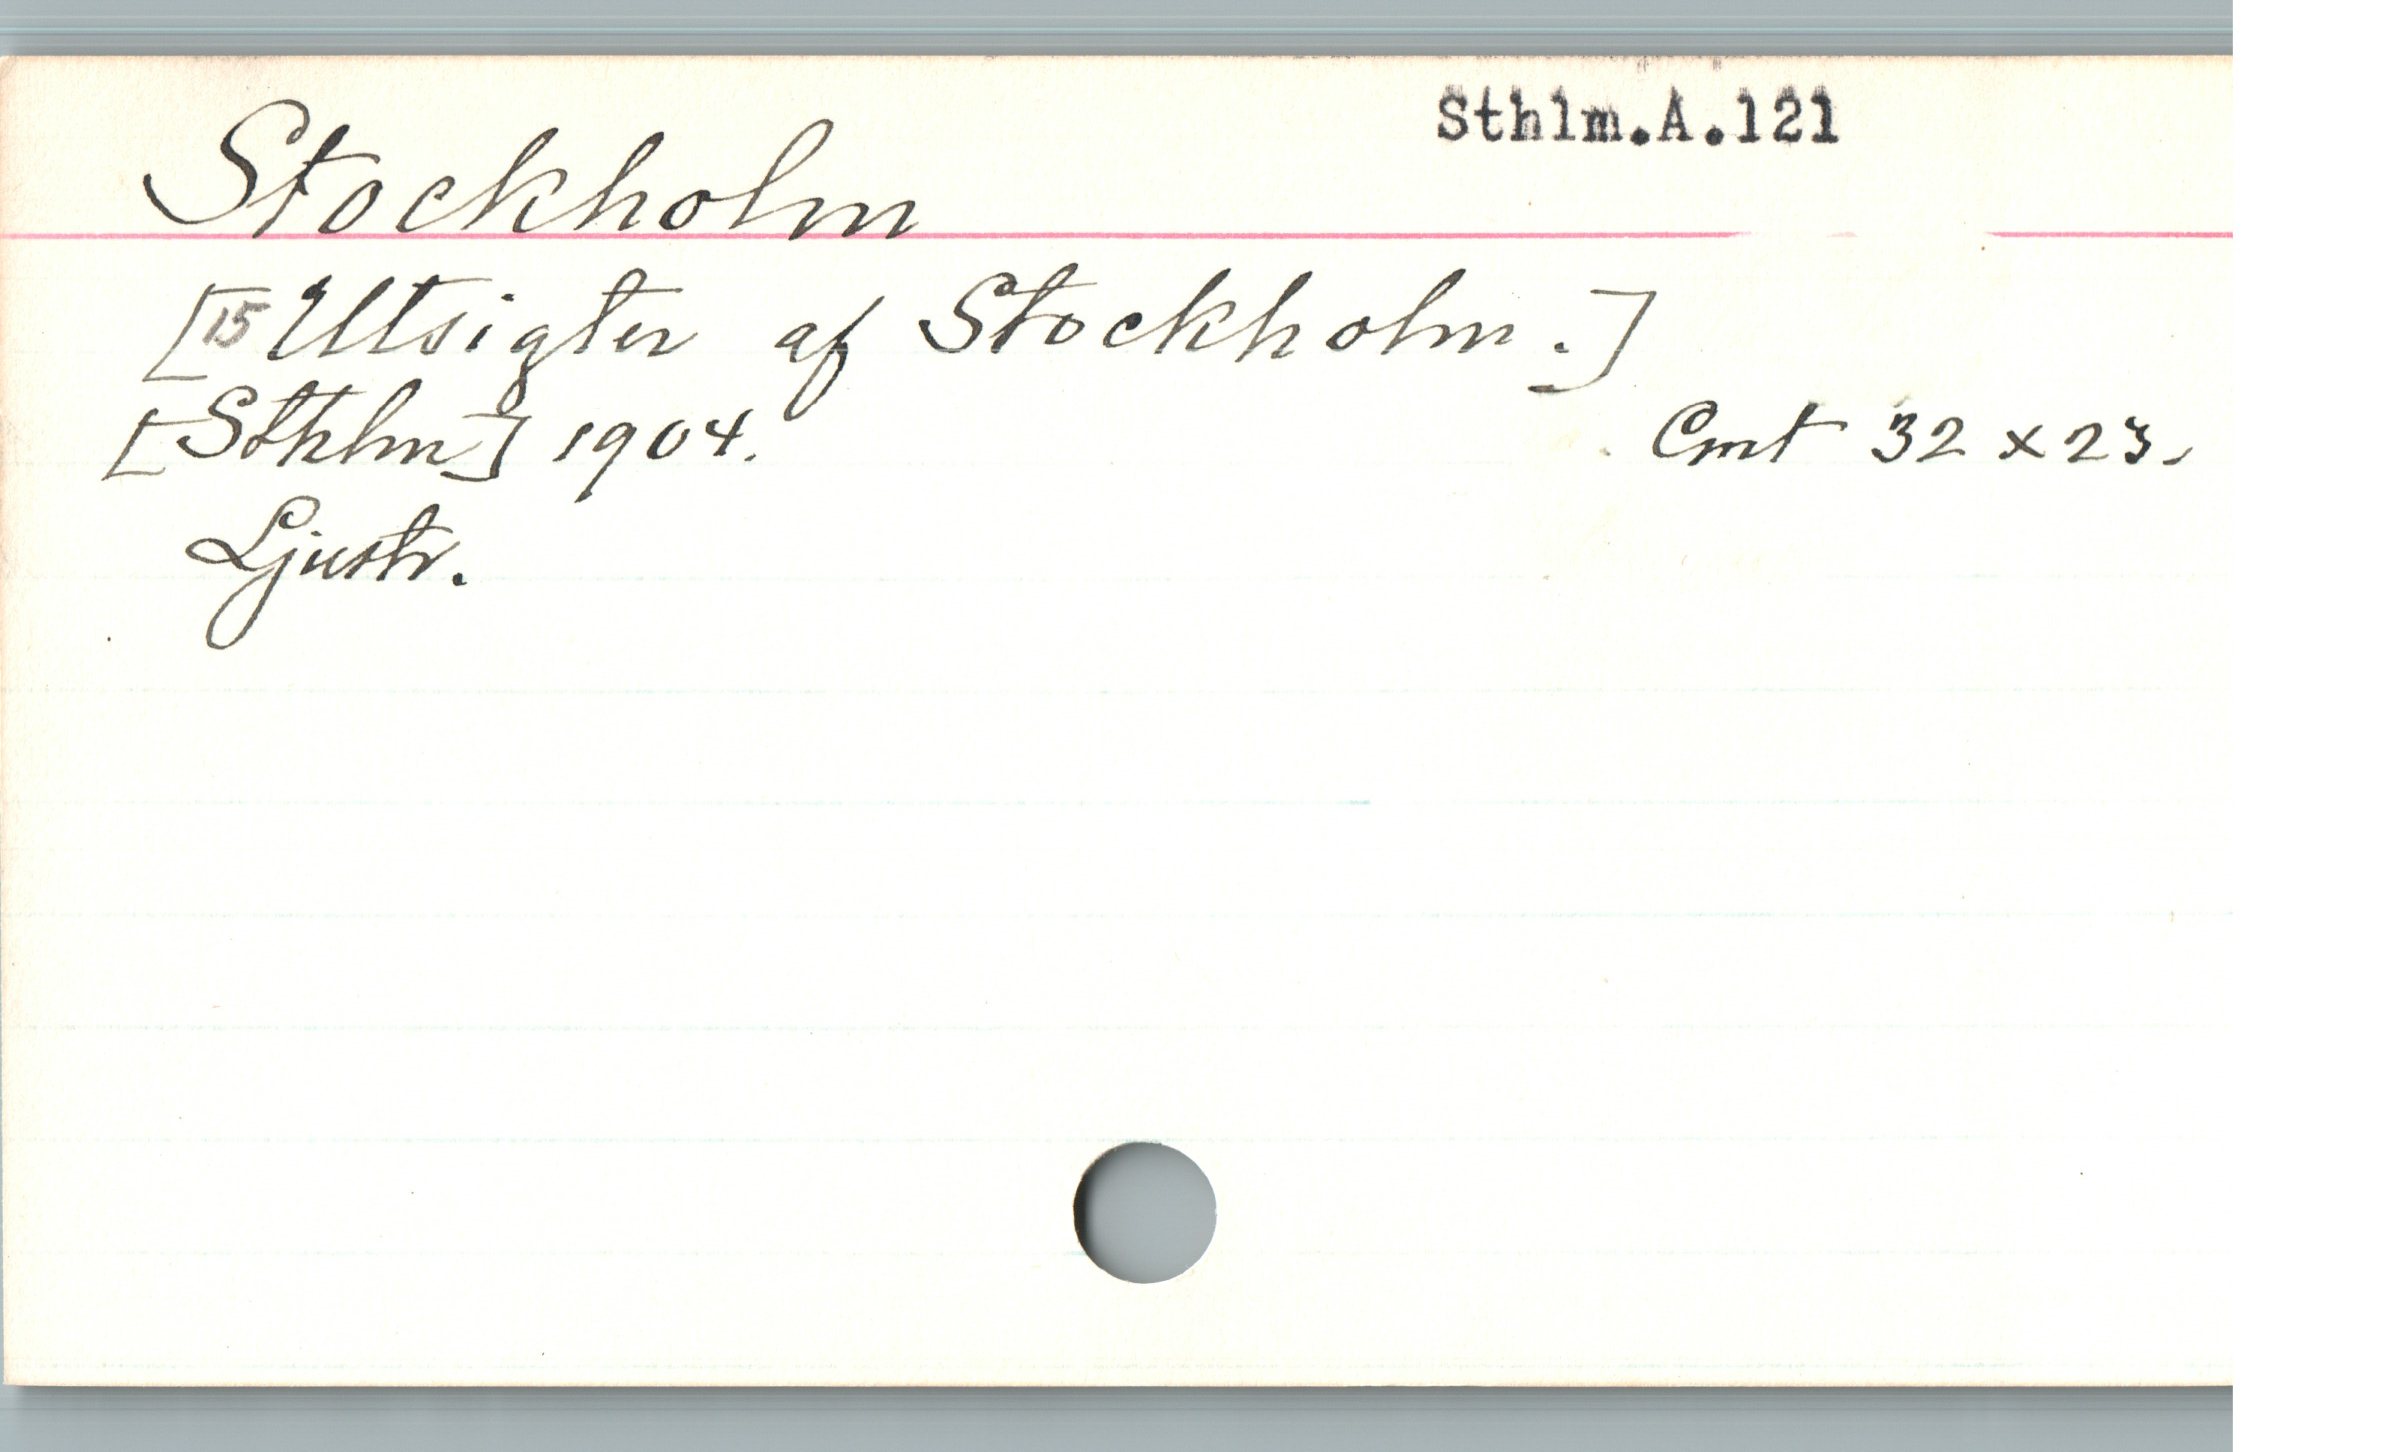 Sthlm.A.121
Stockholm
[15 Utsigter af Stockholm.]
[Sthlm] 1904. Cmt 32 x 23.
Ljustr.